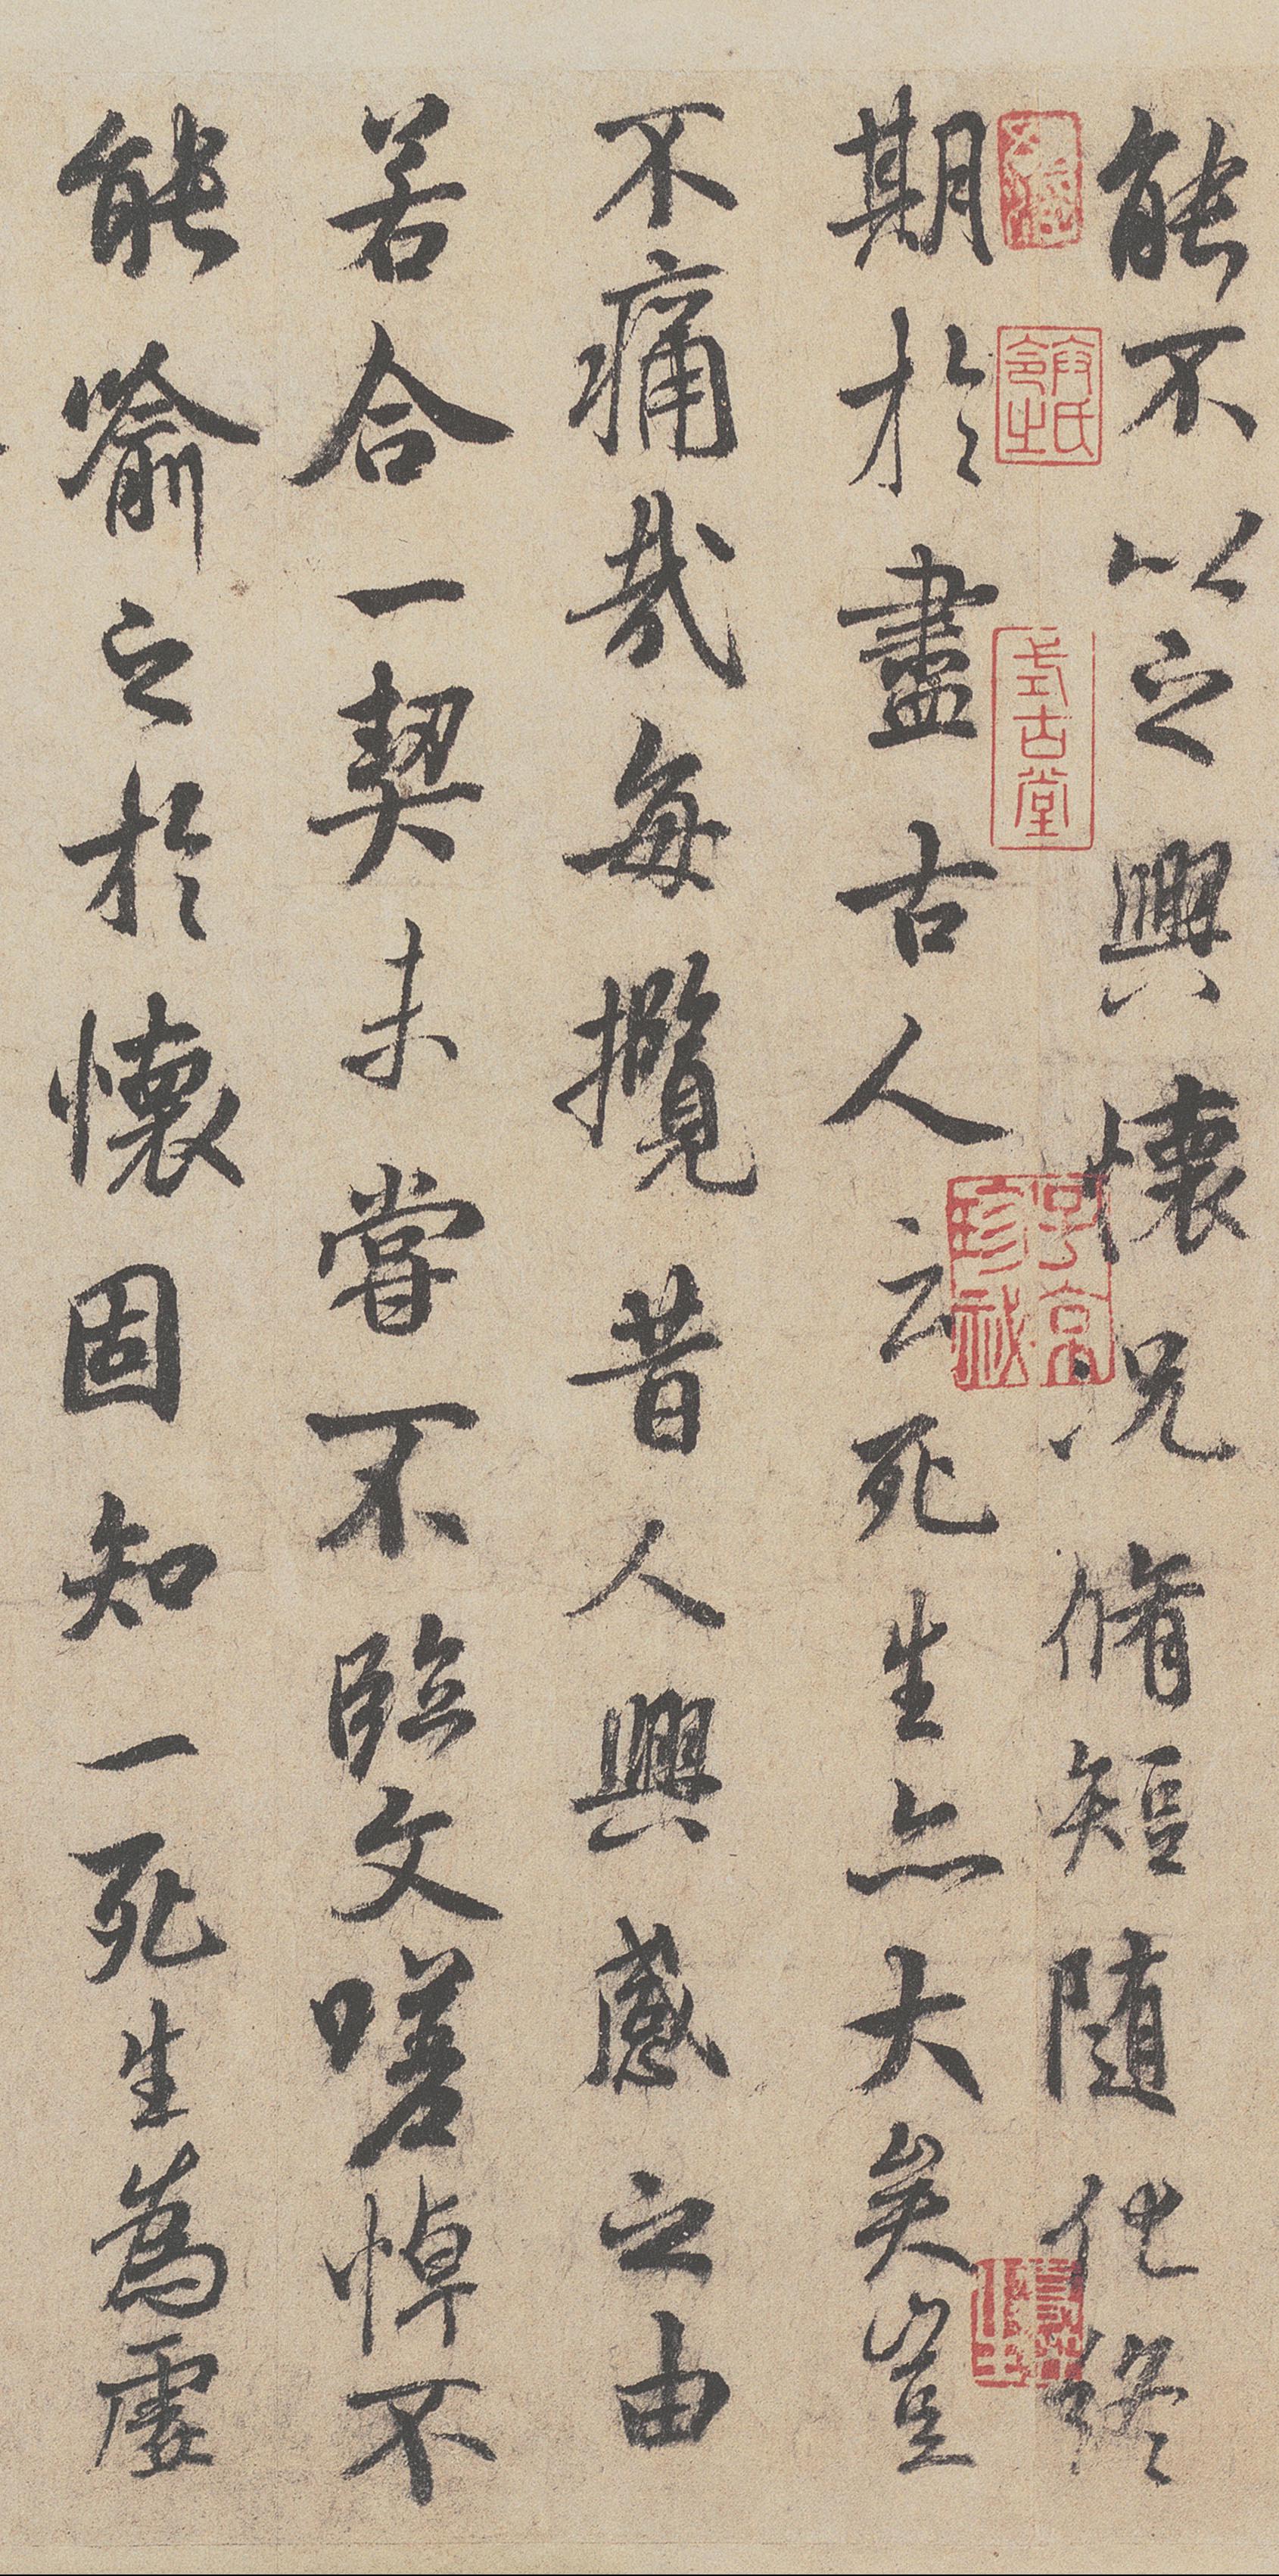 能不以之興懷况脩短随化終
期於盡古人云死生亦大矣豈
不痛哉每攬昔人興感之由
若合一契未嘗不臨文嗟悼不
能喻之於懷固知一死生為虛
式古堂
子京珍祕